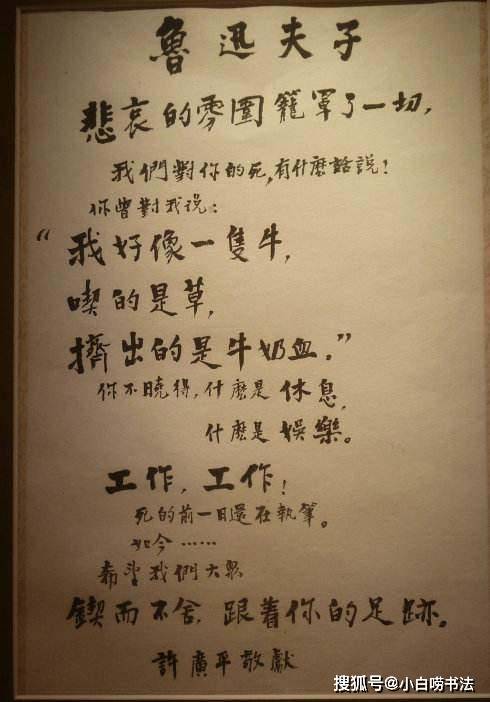 魯迅夫子
悲哀的雰圍籠罩了一切，
我們對你的死，有什麼話說！
你曾對我說：
“我好像一隻牛，
喫的是草，
擠出的是牛奶血。”
你不曉得，什麼是休息，
什麼是娛樂。
工作，工作！
死的前一日還在執筆。
如今……
希望我們大眾
鍥而不舍，跟着你的足跡。
許廣平敬獻
搜狐号@小白唠书法